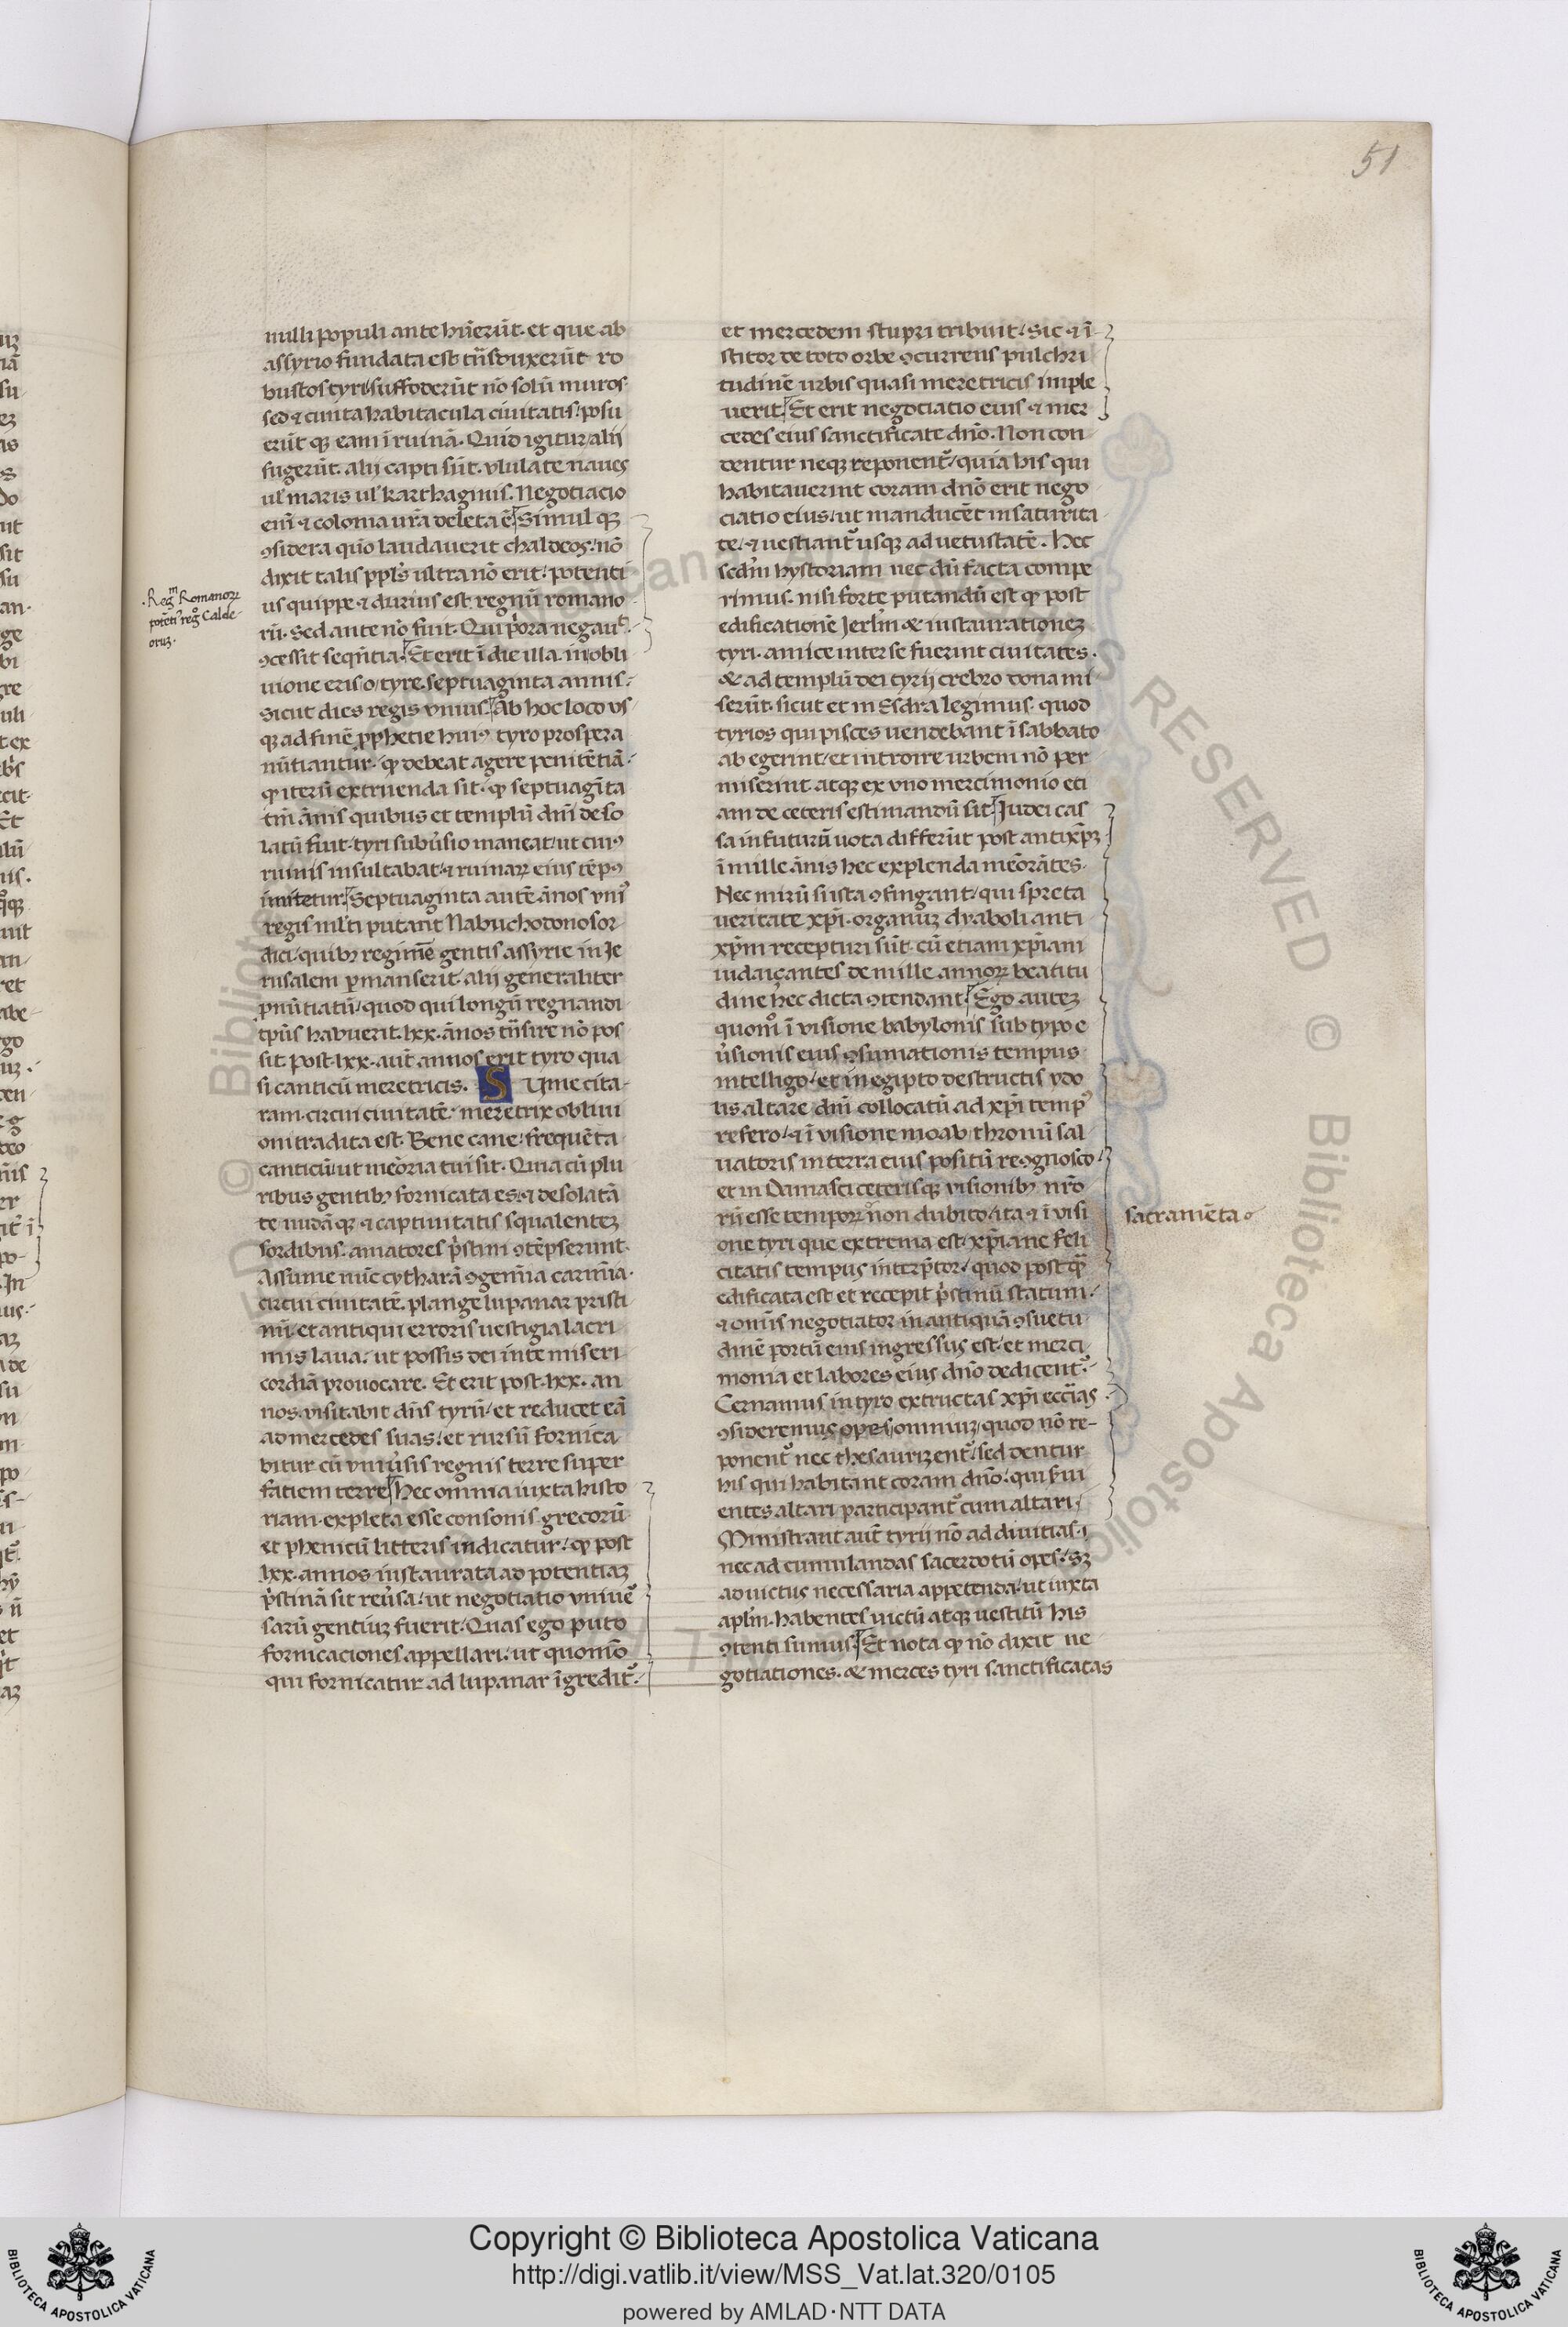 51
nulli populi ante huerūt. et que ab
assyrio fundata est. tn̄sduxerūt ro
bustos tyri. suffoderūt nō solū muros
sed ⁊ cuncta habitacula ciuitatis. posu
erūt qꝫ eam ī ruinā. Quid igitur alij
fugerūt. alij capti sūt. vlulate naues
ul' maris ul' karthaginis. Negotiacio
eni ⁊ colonia ur̄a deleta ē. Simul qꝫ
ꝯsidera quō laudauerit chaldeos. nō
dixit talis ppl's ultra nō erit. potenti
us quippe ⁊ durius est regnū romano
rū. Sed ante nō fuit. Qui p̓ora negau
ꝯcessit seqn̄tia. Et erit ī die illa. in obli
uione eris o tyre. septuaginta annis.
sicut dies regis vnius. Ab hoc loco vs
qꝫ ad finē prophetie huiꝰ tyro prospera
nūtiantur. ꝙ debeat agere penitētiā.
ꝙ iterū extruenda sit. ꝙ septuagīta
tm̄ ānis quibus et templū dn̄i deso
latū fuit. tyri subuͥsio maneat. ut cuiꝰ
ruinis insultabat. ⁊ ruinaꝝ eius tēpꝰ
imitetur. Septuaginta autē ānos vniꝰ
regis ml'ti putant Nabuchodonosor
dici. quibꝫ regimē gentis assyrie in Je
rusalem ꝑmanserit. alij generaliter
pnūtiatū. quod qui longū regnandi
tpūs habuerit. lxx. ānos tn̄sire nō pos
sit. Post. lxx. aut̄ annos erit tyro qua
si canticū meretricis. S Vme cita
ram. circui ciuitatē. meretrix obliui
oni tradita est. Bene cane. frequēta
canticū. ut meōria tui sit. Quia cū plu
ribus gentibꝫ fornicata es. ⁊ desolatā
te nudā qꝫ ⁊ captiuitatis squalentez
sordibus. amatores p̓stini ꝯtēpserunt.
Assume nūc cytharā ꝯgemīa carmīa.
circui ciuitatē. plange lupanar pristi
nū. et antiqui erroris uestigia lacri
mis laua. ut possis dei in te miseri
cordiā prouocare. Et erit post. lxx. an
nos. visitabit dn̄s tyrū. et reducet eā
ad mercedes suas. et rursū fornica
bitur cū vniuͥsis regnis terre super
fatiem terre. Hec omnia iuxta histo
riam. expleta esse consonis grecorū
et phenicū litteris indicatur. ꝙ post
lxx. annos instaurata ad potentiaꝫ
p̓stinā sit reuͥsa. ut negotiatio vniuē
sarū gentiuꝫ fuerit. Quas ego puto
fornicaciones appellari. ut quomō
qui fornicatur ad lupanar īgredit᷑.
.Regm̄ Romanoꝝ
potēti regō Calde
oruꝫ.
et mercedem stupri tribuit. sic ⁊ ī
stitor de toto orbe ꝯcurrens pulchri
tudinē urbis quasi meretricis imple
uerit. Et erit negociatio eius ⁊ mer
cedes eius sanctificate dn̄o. Non con
dentur neqꝫ reponent᷑. quia his qui
habitauerint coram dn̄o erit nego
ciatio eius. ut manducēt in saturita
te. ⁊ uestiant᷑ usqꝫ ad uetustatē. Hec
sedm̄ hystoriam nec dū facta compe
rimus. nisi forte putandū est ꝙ post
edificationē Jerl'm & instaurationez
tyri. amice inter se fuerint ciuitates.
& ad templū dei tyrij crebro dona mi
serūt. sicut et in Esdra legimus. quod
tyrios qui pisces uendebant ī sabbato
ab egerint. et introire urbem nō per
miserint. atqꝫ ex vno mercimonio eti
am de ceteris estimandū sit. Judei cas
sa in futurū uota differūt post antix̄pꝫ
ī mille ānis hec explenda meōrātes.
Nec mirū si ista ꝯfingant. qui spreta
ueritate xp̄i. organuꝫ dyaboli anti
xp̄m recepturi sūt. cū etiam xp̄iam
iudaiçantes de mille annoꝝ beatitu
dine hec dicta ꝯtendant. Ego auteꝫ
quom̊ ī visione babylonis sub typo e
uͥsionis eius ꝯsumationis tempus
intelligo. et in egipto destructis ydo
lis altare dn̄i collocatū ad xp̄i tempꝰ
refero. ⁊ ī visione moab thronū sal
uatoris in terra eius positū reꝯgnosco.
et in Damasci ceterisqꝫ visionibꝫ nr̄o
rū esse tempoꝝ non dubito. ita ⁊ ī visi
one tyri que extrema est. xp̄iane feli
citatis tempus interp̓tor. quod postqꝫ
edificata est et recepit p̓stinū statum.
⁊ omīs negotiator in antiquā ꝯsuetu
dinē portū eius ingressus est. et merci
monia et labores eius dn̄o dedicent᷑.
Cernamus in tyro extructas xp̄i ecc̄ias.
ꝯsideremus opes omniuꝫ. quod nō re-
ponent᷑ nec thesaurizent᷑. sed dentur
his qui habitant coram dn̄o. qui sui
entes altari participant᷑ cum altari.
Ministrant aut̄ tyrij nō ad diuitias.
nec ad cumulandas sacerdotū opes. sꝫ
ad uictus necessaria appetenda. ut iuxta
apl'm. habentes uictū atqꝫ uestitū his
ꝯtenti simus. Et nota ꝙ nō dixit ne
gotiationes. & merces tyri sanctificatas
sacramēta
Copyright © Biblioteca Apostolica Vaticana
http://digi.vatlib.it/view/MSS_Vat.lat.320/0105
powered by AMLAD·NTT DATA
BIBLIOTECA APOSTOLICA VATICANA
BIBLIOTECA APOSTOLICA VATICANA